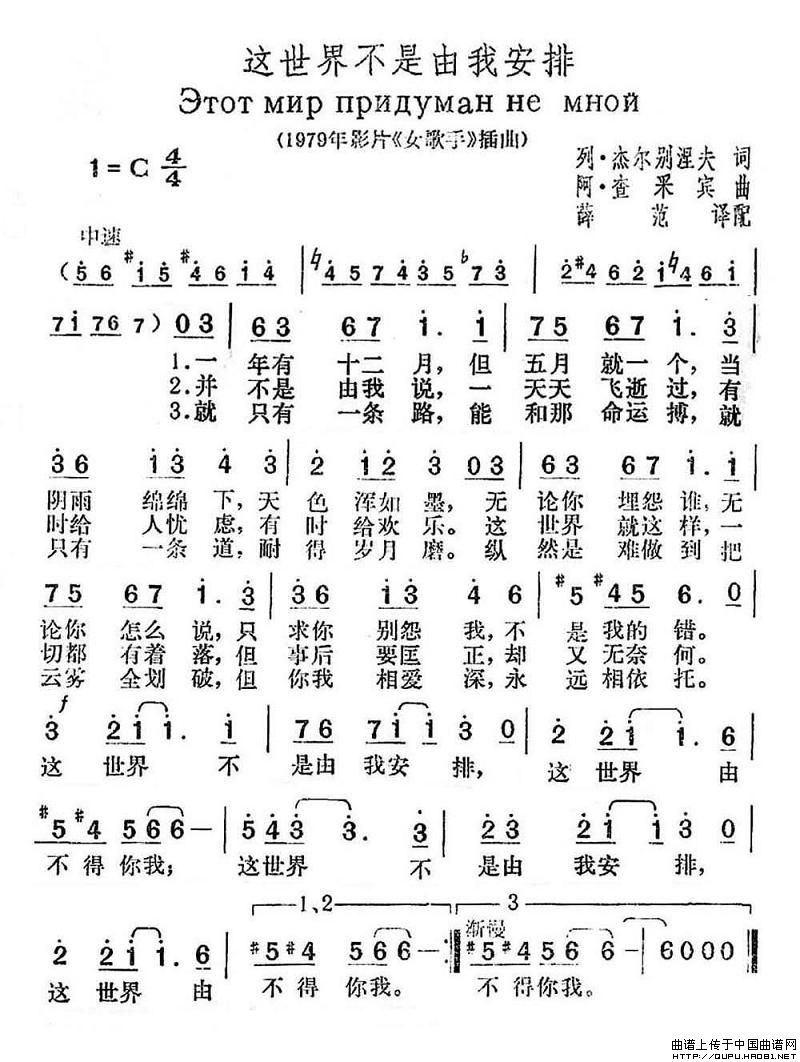 这世界不是由我安排
Этот мир придуман не мной
(1979年影片《女歌手》插曲)
1=C 4/4
列·杰尔别涅夫 词
阿·查果宾 曲
薛范 译配
中速
(5 6 #1 5 #4 6 1 4 | ♮4 5 7 4 3 5 ♭7 3 | 2 #4 6 2 1 ♮4 6 1
7 1 7 6 7) 0 3 | 6 3 6 7 1. 1 | 7 5 6 7 1. 3
1.一 年有 十二 月，但 五月 就一 个，当
2.并 不是 由我 说，一 天天 飞逝 过，有
3.就 只有 一条 路，能 和那 命运 搏，就
3 6 1 3 4 3 | 2 1 2 3 0 3 | 6 3 6 7 1. 1
阴雨 绵绵 下，天 色 浑如 墨，无 论你 埋怨 谁，无
时给 人忧 虑，有 时 给欢 乐。这 世界 就这 样，一
只有 一条 道，耐 得 岁月 磨。纵 然是 难做 到 把
7 5 6 7 1. 3 | 3 6 1 3 4 6 | #5 #4 5 6. 0
论你 怎么 说，只 求你 别怨 我，不 是 我的 错。
切都 有着 落，但 事后 要匡 正，却 又 无奈 何。
云雾 全划 破，但 你我 相爱 深，永 远 相依 托。
f
3 2 1 1. 1 | 7 6 7 1 1 3 0 | 2 2 1 1. 6
这 世界 不 是由 我安 排， 这 世界 由
#5 #4 5 6 6 — | 5 4 3 3. 3 | 2 3 2 1 1 3 0
不 得 你我； 这世界 不 是由 我安 排，
1、2 3
渐慢
2 2 1 1. 6 | #5 #4 5 6 6 — :‖ #5 #4 5 6 6 — | 6 0 0 0 ‖
这 世界 由 不 得 你我。 不 得 你我。
曲谱上传于中国曲谱网
HTTP://QUPU.HAO81.NET